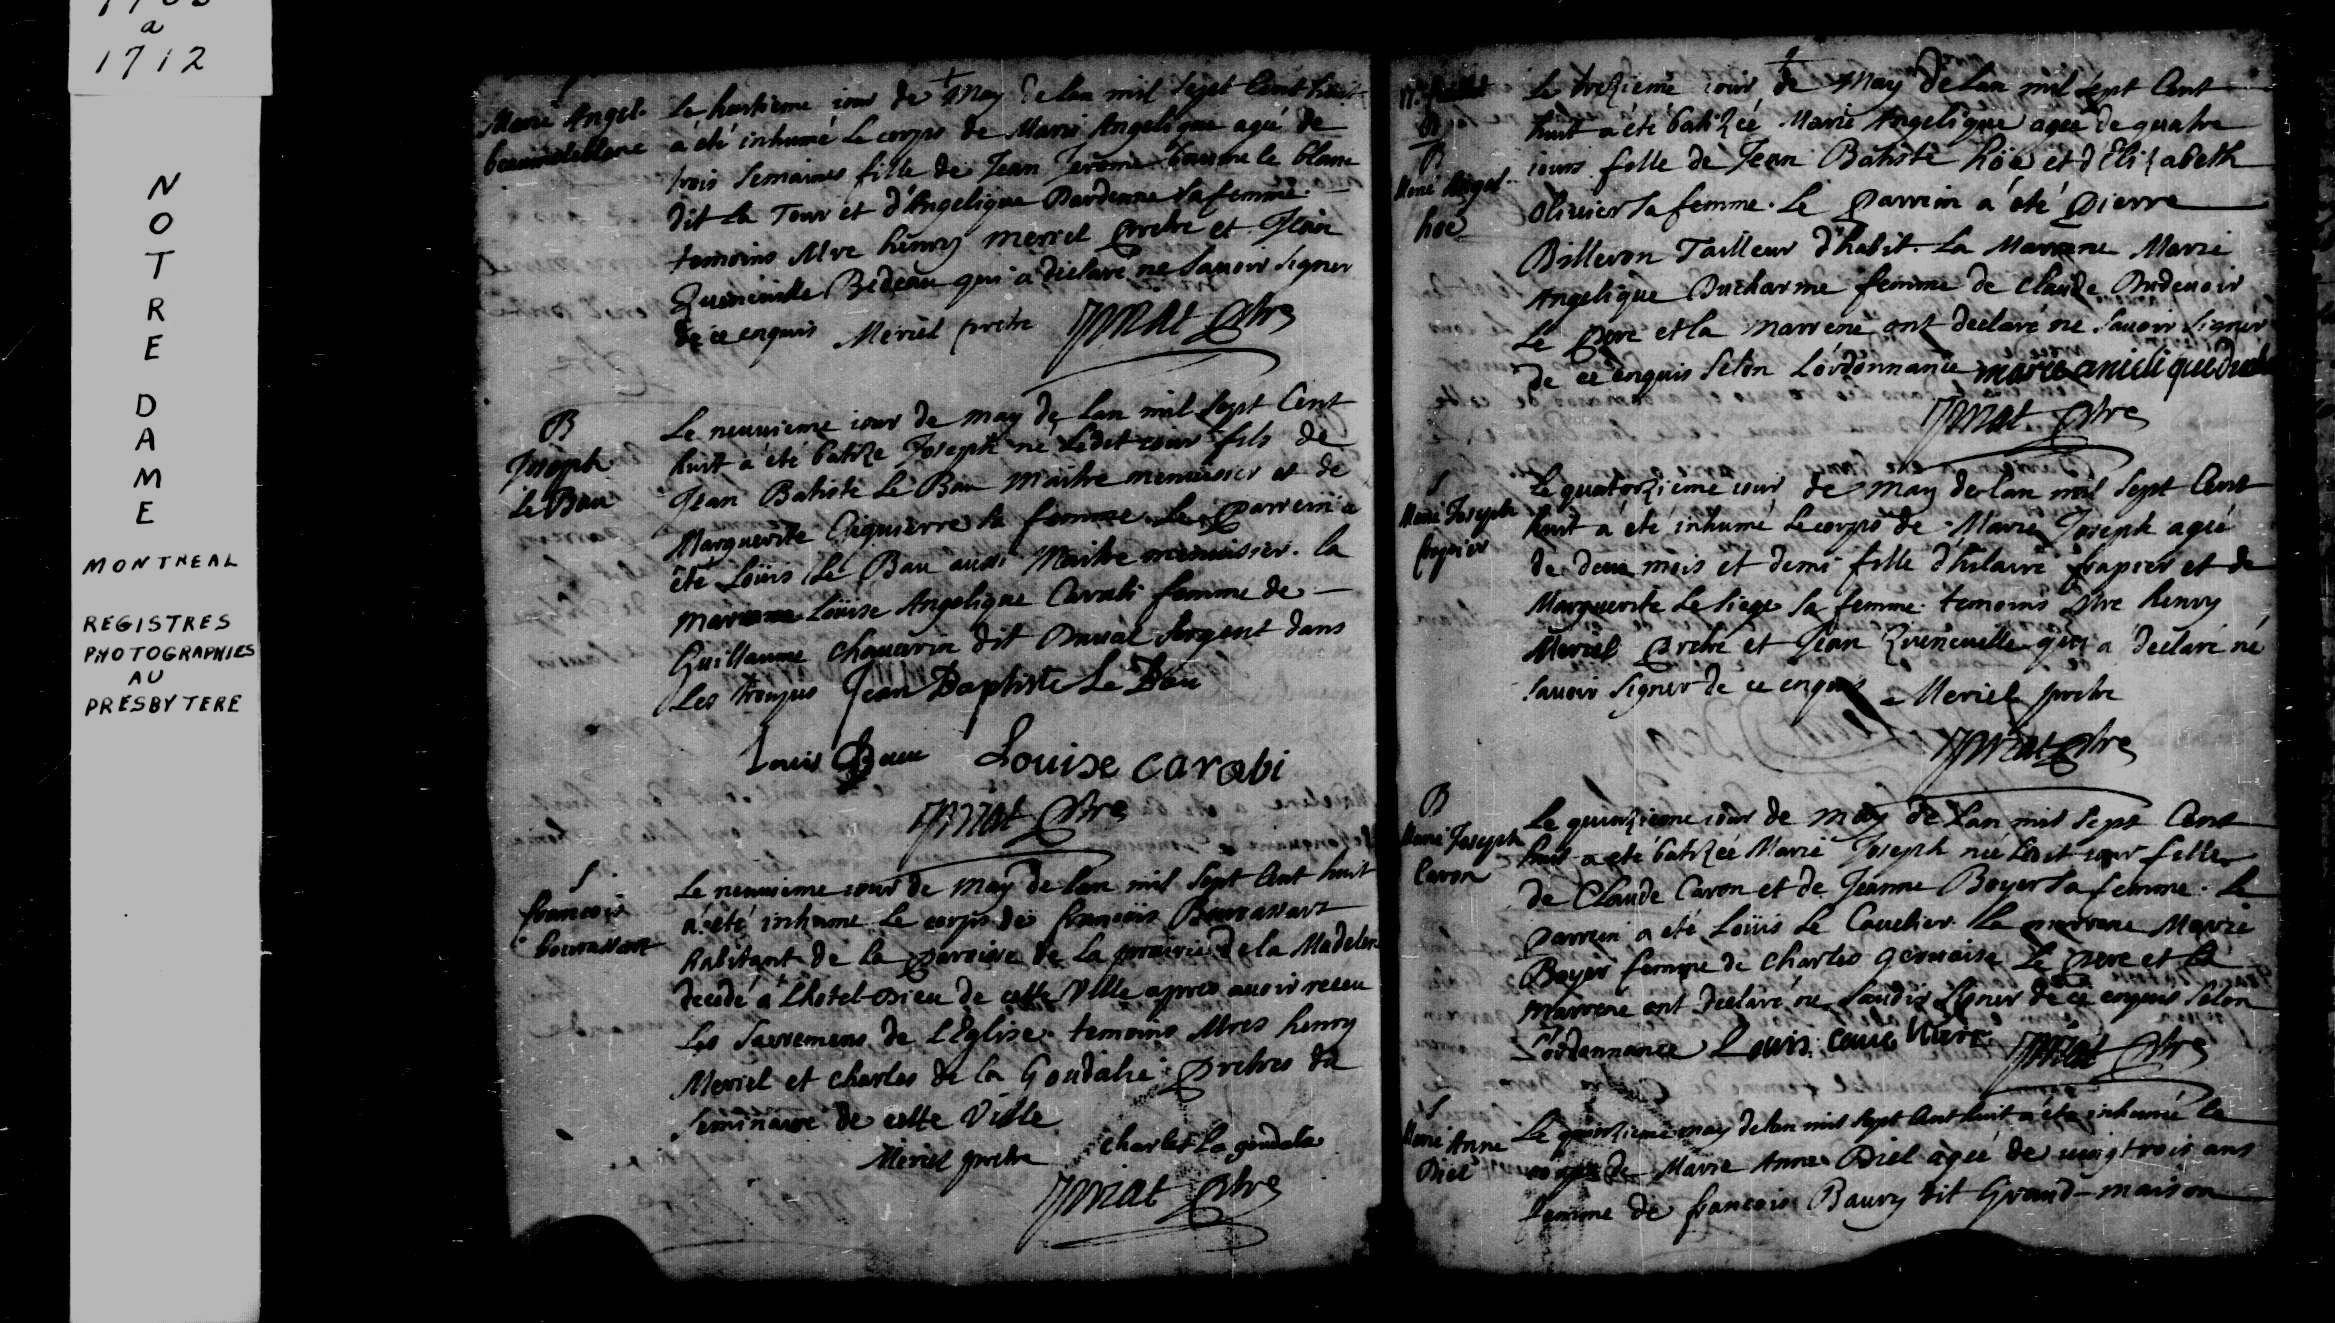 a
1712
NOTRE
DAME
MONTREAL
REGISTRES
PHOTOGRAPHIES
AU
PRESBYTERE
Marie Angel.
Le huitieme iour de May de lan mil sept Cent huit
a été inhumé Le corps de Marie Angelique agée de
trois semaines fille de Jean Jerome baume le blanc
dit La Tour et d'Angelique Dardenne sa femme.
temoins Mre henry meriel Pretre et Jean
Quenneville Bedeau qui a declaré ne savoir signer
de ce enquis Meriel pretre Priat Ptre
B
Joseph
Le Bau
Le neuvieme iour de may de lan mil sept Cent
huit a été batizé Joseph né Ledit iour fils de
Jean Batiste Le Bau maitre menuisier et de
Marguerite sa femme. Le Parrein a
été Loüis Le Bau aussi Maitre menuisier. la
marrene Loüise Angelique Carabi femme de
Guillaume Chauvrin dit Duval sergent dans
Les troupes Jean Baptiste Le Bau
Louis Bau Louise carabi
Priat Ptre
S
francois
bourassart
Le neuvieme iour de may de lan mil sept Cent huit
a été inhumé Le corps de francois Bourassart
habitant de la paroisse de La prairie de la Madelene
decedé a Lhotel-Dieu de cette Ville apres avoir receu
Les Sacremens de L'Eglise. temoins Mres henry
Meriel et charles de la Goudalie Pretres du
seminaire de cette Ville
Meriel pretre charles La goudalie
Priat Ptre
B
Marie Angel.
hoé
Le trezieme iour de May de lan mil sept Cent
huit a été batizée Marie Angelique agée de quatre
iours fille de Jean Batiste hoé et d'Elizabeth
Olivier sa femme. Le Parrein a été Pierre
Billeron Tailleur d'habit. La Marrene Marie
Angelique Ducharme femme de Claude Dudevoir
Le Pere et la marrene ont declaré ne savoir signer
de ce enquis selon L'ordonnance
Priat Ptre
S
Marie Joseph
frapier
Le quatorzieme iour de may de lan mil sept Cent
huit a été inhumé Le corps de Marie Joseph agée
de deux mois et demi fille d'hilaire frapier et de
Marguerite Le siege sa femme. temoins Mre henry
Meriel Pretre et Jean Quenneville qui a declaré ne
savoir signer de ce enquis Meriel pretre
Priat Ptre
B
Marie Joseph
Caron
Le quinzieme iour de may de lan mil sept Cent
huit a été batizée Marie Joseph née Ledit iour fille
de Claude Caron et de Jeanne Boyer sa femme. Le
parrein a été Loüis Le Cavelier La marrene Marie
Boyer femme de charles gervaise Le Pere et la
marrene ont declaré ne savoir signer de ce enquis selon
L'ordonnance Louis Priat Ptre
S
Marie Anne
Diel
Le quinzieme may de lan mil sept Cent huit a été inhumé le
corps de Marie Anne Diel agée de vingtrois ans
femme de francois Baury dit Grand-maison